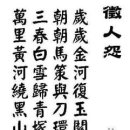 徵人怨
歲歲金河復玉關
朝朝馬策與刀環
三春白雪歸青塚
萬里黃河繞黑山